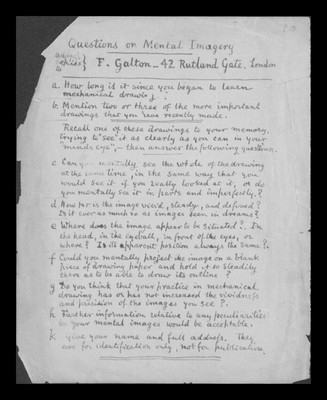 Questions on Mental Imagery
replies to } F. Galton — 42 Rutland Gate. London
a. How long is it since you began to learn
mechanical drawing?
b. Mention two or three of the more important
drawings that you have recently made.
Recall one of these drawings to your memory,
trying to "see" it as clearly as you can in your
"mind's eye", — then answer the following questions.
c Can you mentally see the whole of the drawing
at the same time, in the same way that you
would see it if you really looked at it, or do
you mentally see it in parts and imperfectly?
d How far is the image vivid, steady, and defined?
Is it ever as much so as images seen in dreams?
e Where does the image appear to be situated? In
the head, in the eyeball, in front of the eyes, or
where? Is its apparent position always the same?
f Could you mentally project the image on a blank
piece of drawing paper and hold it so steadily
there as to be able to draw its outline?
g Do you think that your practice in mechanical
drawing has or has not increased the vividness
and precision of the images you see?
h Further information relative to any peculiarities
in your mental images would be acceptable.
k give your name and full address. They
are for identification only, not for publication.